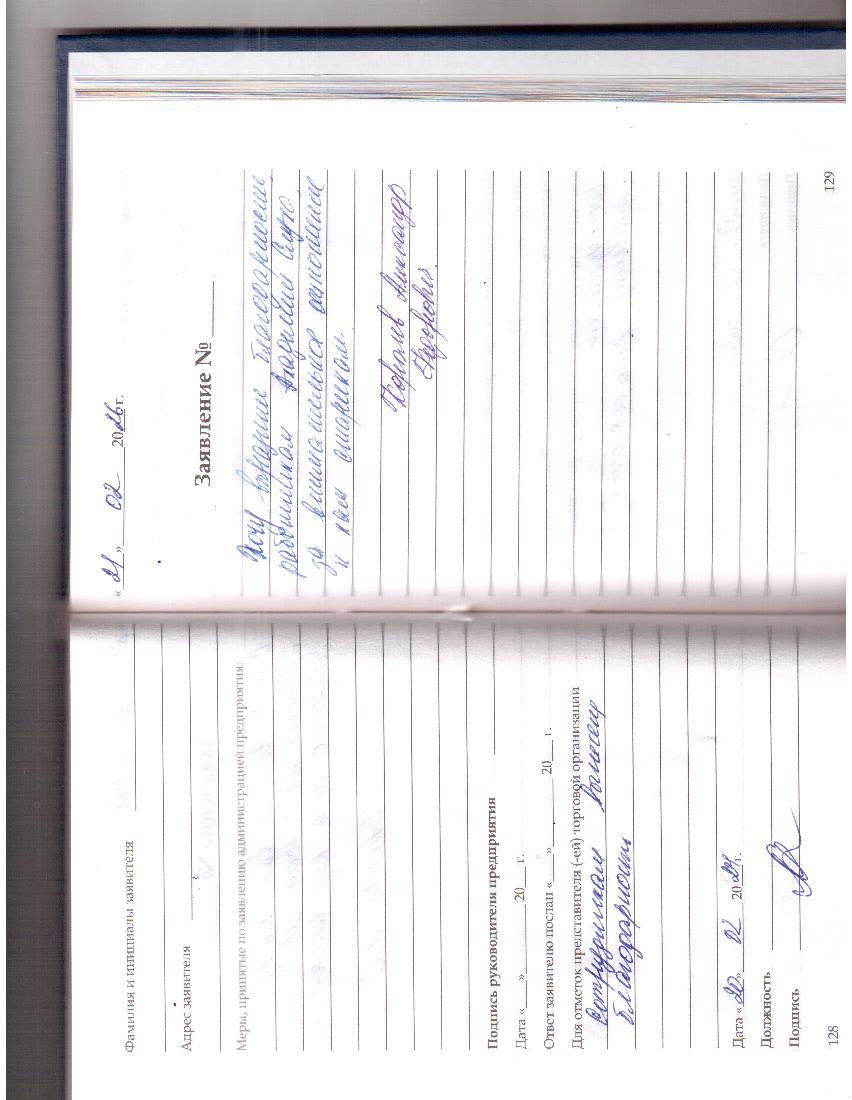 Фамилия и инициалы заявителя
Адрес заявителя
Меры, принятые по заявлению администрацией предприятия:
Подпись руководителя предприятия
Дата «___»________ 20___ г.
Ответ заявителю послан «___»________ 20___ г.
Для отметок представителя (-ей) торговой организации
Сотрудникам вынесены
благодарности
Дата «20» 02 20 г.
Должность
Подпись
128
«21» 02 2026 г.
Заявление № ____
Хочу выразить благодарность
работникам
за внимательное отношение
к нам старикам
Королев Александр
129